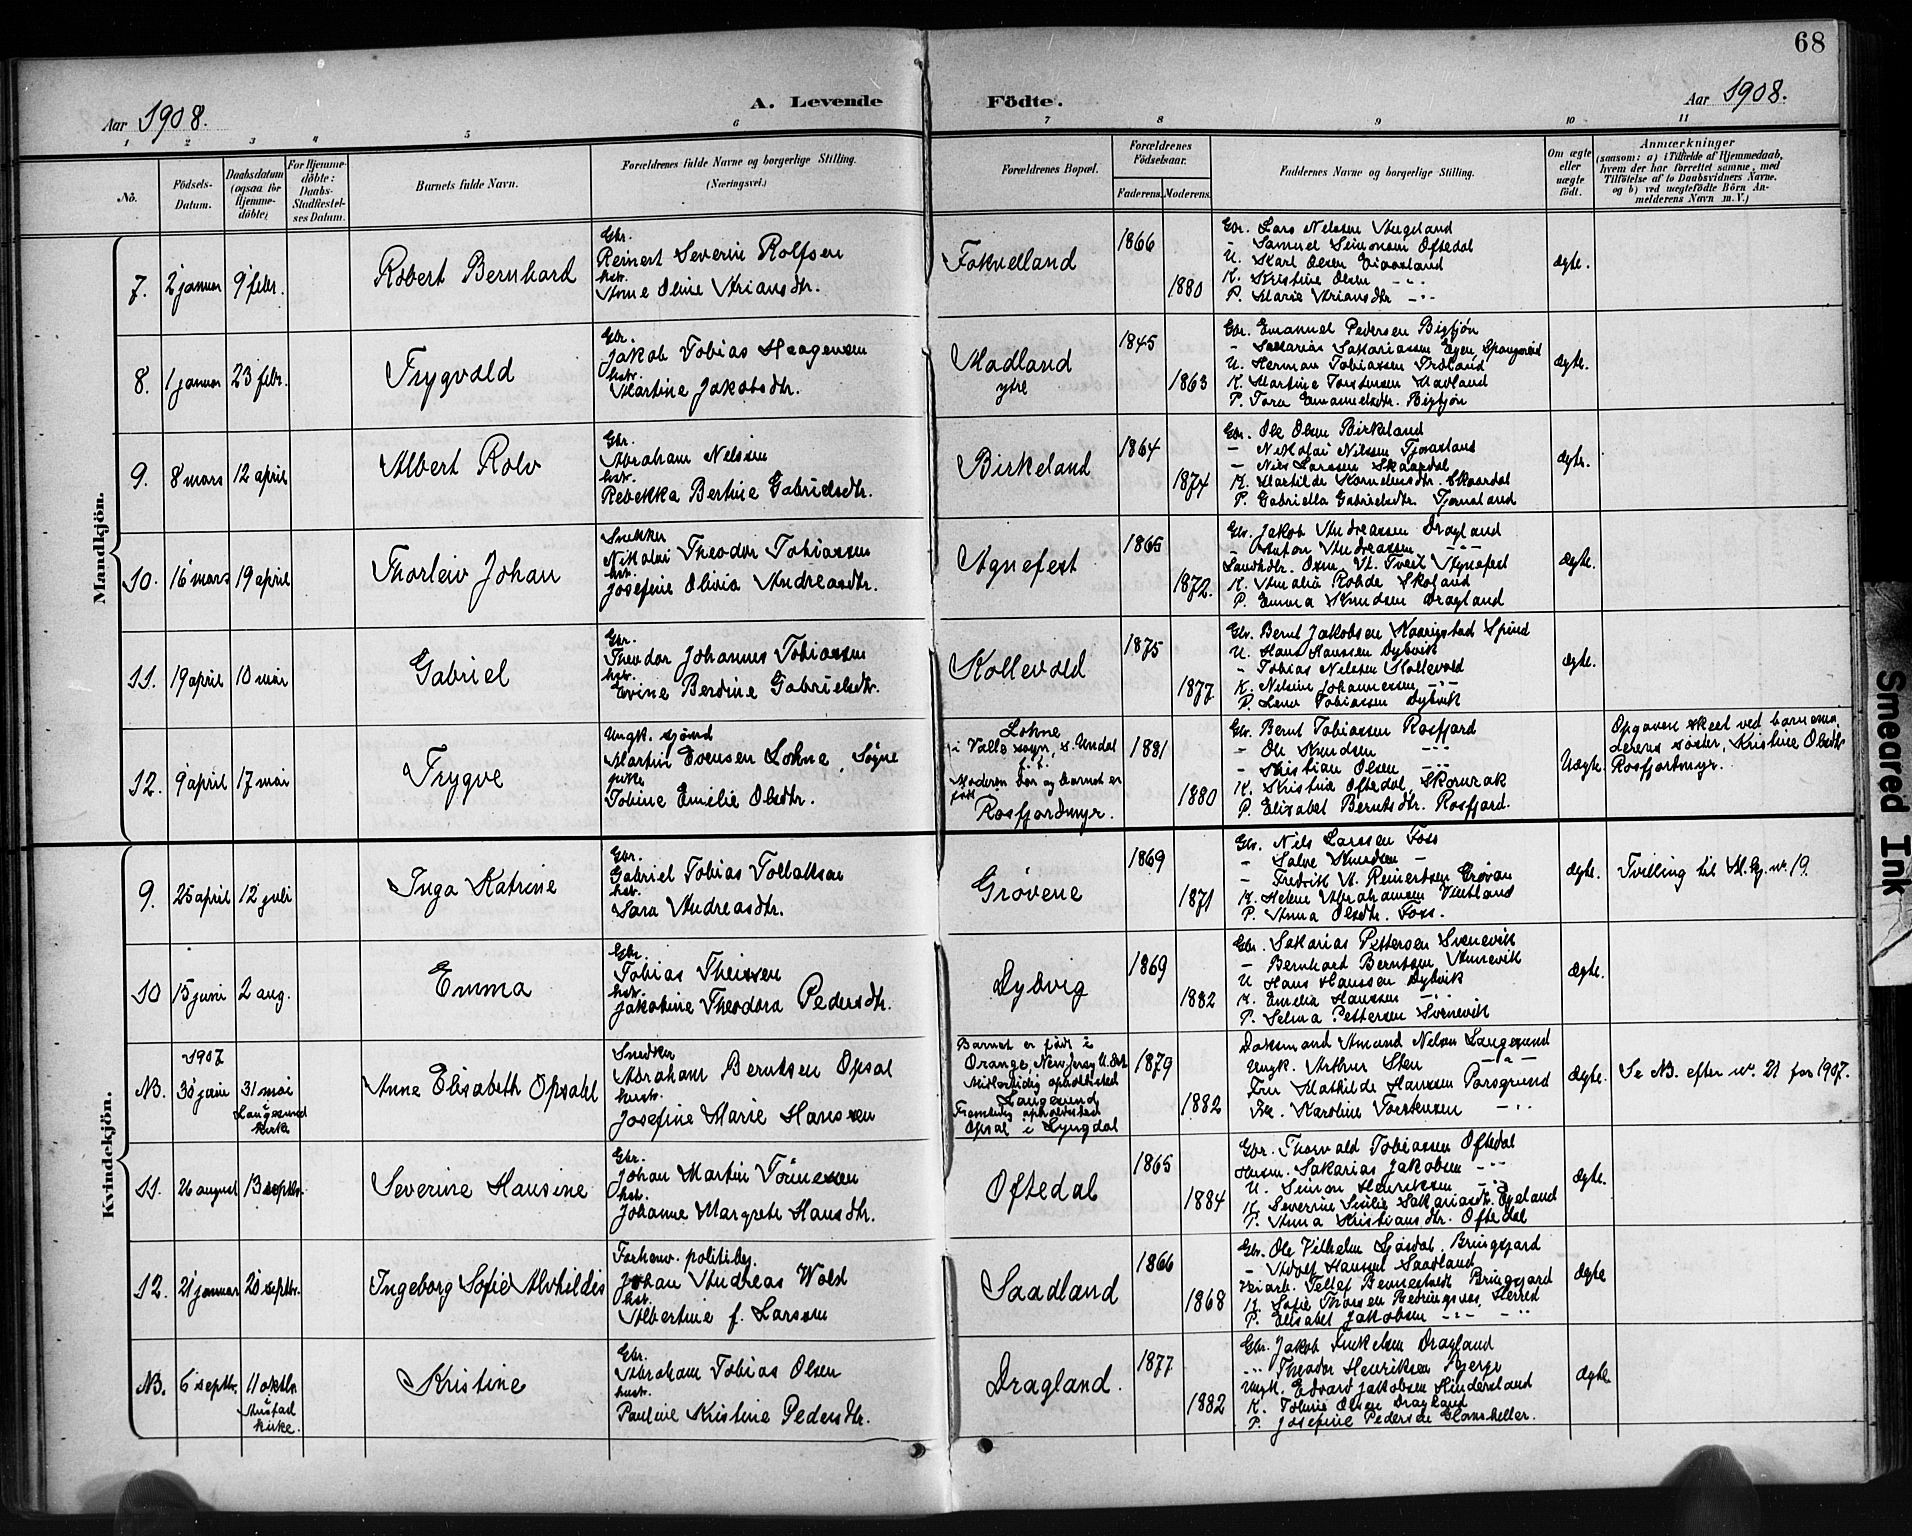 68
Aar 1908.
A. Levende Födte.
Aar 1908.
1 2 3 4 5 6 7 8 9 10 11
No.
Födsels-Datum.
Daabsdatum (ogsaa for Hjemme-döbte)
For Hjemme-döbte: Daabs-Stadfæstel-ses Datum.
Barnets fulde Navn.
Forældrenes fulde Navne og borgerlige Stilling.
(Næringsvei.)
Forældrenes Bopæl.
Forældrenes Födselsaar.
Faderens. Moderens.
Faddernes Navne og borgerlige Stilling.
Om ægte eller uægte födt.
Anmærkninger
(saasom: a) i Tilfælde af Hjemmedaab,
hvem der har forrettet samme, med
Tilföielse af to Daabsvidners Navne.
og b) ved uægtefödte Börn An-
melderens Navn m. V.)
Mandkjön.
7. 2 januar 9 febr. Robert Bernhard
Gbr.
Reinert Severin Rolfsen
hstr.
Anne Oline Ariansdtr.
Fokvelland 1866 1880
Gbr. Lars Nilssen Augeland
- Samuel Simonsen Oftedal
U. Karl Olsen
K. Kristine Olsen -"-
P. Marie Ariansdtr -"-
ægte.
8. 1 januar 23 febr. Trygvald
Gbr.
Jakob Tobias Haagensen
hstr.
Martine Jakobsdtr.
Aadland ytre 1845 1863
Gbr. Emanuel Pedersen Bigtjøn
- Sakarias Sakariassen Egen, Spangereid
U. Herman Tobiassen Træland
K. Martine Torstensen Aavland
P. Tora Emanuelsdtr. Bigtjøn
ægte.
9. 8 mars 12 april Albert Rolv
Gbr.
Abraham Nelsen
hstr.
Rebekka Bertine Gabrielsdtr.
Birkeland 1864 1874
Gbr. Ole Olsen Birkeland
- Nikolai Nilssen
- Nils Larssen Skaardal
K. Matilde Korneliusdtr. Skaardal
P. Gabriella Gabrielsdtr.
ægte.
10. 16 mars 19 april Thorleiv Johan
Snekker
Nikolai Theodor Tobiassen
hstr.
Josefine Olivia Andreasdtr.
Agnefest 1865 1872.
Gbr. Jakob Andreassen Dragland
- Anton Andreassen -"-
Landhdlr. Osm. At. Tveit Agnefest
K. Amalie Rohde Skoland
P. Emma Knudsen Dragland
ægte.
11. 19 april 10 mai Gabriel
Gbr.
Theodor Johannes Tobiassen
hstr.
Evine Berdine Gabrielsdtr.
Kollevold 1875 1877
Gbr. Bernt Jakobsen Naarigstad Spind
U. Hans Hanssen Dybvik
- Tobias Nelsen Kollevold
K. Nilsine Johannessen -"-
P. Lena Tobiassen Dybvik
ægte.
12. 9 april 17 mai Trygve
Ungk. sjømd
Martin Evensen Lohne, Søgne
pike
Tobine Emilie Olsdtr.
Lohne
i Valle sogn, S. Undal
Moderen bor og barnet er
født
Rosfjordmyr.
1881 1880
Gbr. Bernt Tobiassen Rosfjord
- Ole Knudsen -"-
- Kristian Olsen -"-
K. Kristine Oftedal,
P. Elisabet Berntsdtr. Rosfjord.
Uægte.
Opgaven skeet ved barnemo-
derens søster, Kristine Olsdtr
Rosfjordmyr.
Kvindekjön.
9. 25 april 12 juli Inga Katrine
Gbr.
Gabriel Tobias Tollaksen
hstr.
Sara Andreasdtr.
Grøvene 1869 1871
Gbr. Nils Larssen Foss
- Salve Knudsen -
- Fredrik A. Reinertsen Grøvan
K. Helene Abrahamsen
P. Anna Olsdtr. Foss.
ægte.
Tvilling til M.kj. nr. 19.
10 15 juni 2 aug. Emma
Gbr.
Tobias Theissen
hstr.
Jakobine Theodora Pedersdtr.
Dybvig 1869 1882
Gbr. Sakarias Pettersen Svenevik
- Bernhard Berntsen
U Hans Hanssen Dybvik
K. Emelia Hanssen -"-
P. Selma Pettersen Svenevik
ægte.
NB. 1907
30 juni
31 mai
i
Langesund
kirke
Anne Elisabeth Opsahl
Snedker
Abraham Berntsen Opsal
hustr.
Josefine Marie Hanssen
Barnet er født i
Orange, New Jersy U. St.
Midlertidig opholdssted
Langesund
Fremtidig opholdssted
Opsal i Lyngdal
1879 1882
Amand Nelsen Langesund
Ungk. Arthur Sten -"-
Fru Mathilde Hanssen Porsgrund
Frk. Karoline Torstensen -"-
ægte.
Se NB. efter nr. 21 for 1907.
11. 26 august 13 septbr. Severine Hansine
Gbr.
Johan Martin Tønnessen
hstr.
Johanne Margrete Hansdtr.
Oftedal 1865 1884
Gbr. Thorvald Tobiassen Oftedal
Husm. Sakarias Jakobsen -"-
U. Simon Henriksen -"-
K. Severine Sisilie Sakariasdtr. Egeland
P. Anna Kristiansdtr. Oftedal
ægte.
12. 21 januar 20 septbr. Ingeborg Sofie Alvhildis
Forhenv. politibtj.
Johan Andreas Wold
hstr.
Albertine f. Larssen
Saadland 1866 1868
Gbr. Ole Vilhelm Sjøsdal, Bringsjord
- Adolf Hanssen Saadland
Veiarb. Tellef Bennestvedt Bringsjord
K. Sofie Thorsen Herred
P. Elisabet Jakobsen -"- -"-
ægte
NB. 6 septbr. 11 oktbr.
i
Austad
kirke.
Kristine
Gbr.
Abraham Tobias Olsen
hustr.
Pauline Kristine Pedersdtr.
Dragland. 1877 1882
Gbr. Jakob Trukelsen Dragland
-"- Theodor Henriksen Bjerge
Ungk. Edvard Jakobsen Hindersland
K. Tobine Olsen Dragland
P. Josefine Pedersen
ægte
Smeared Ink